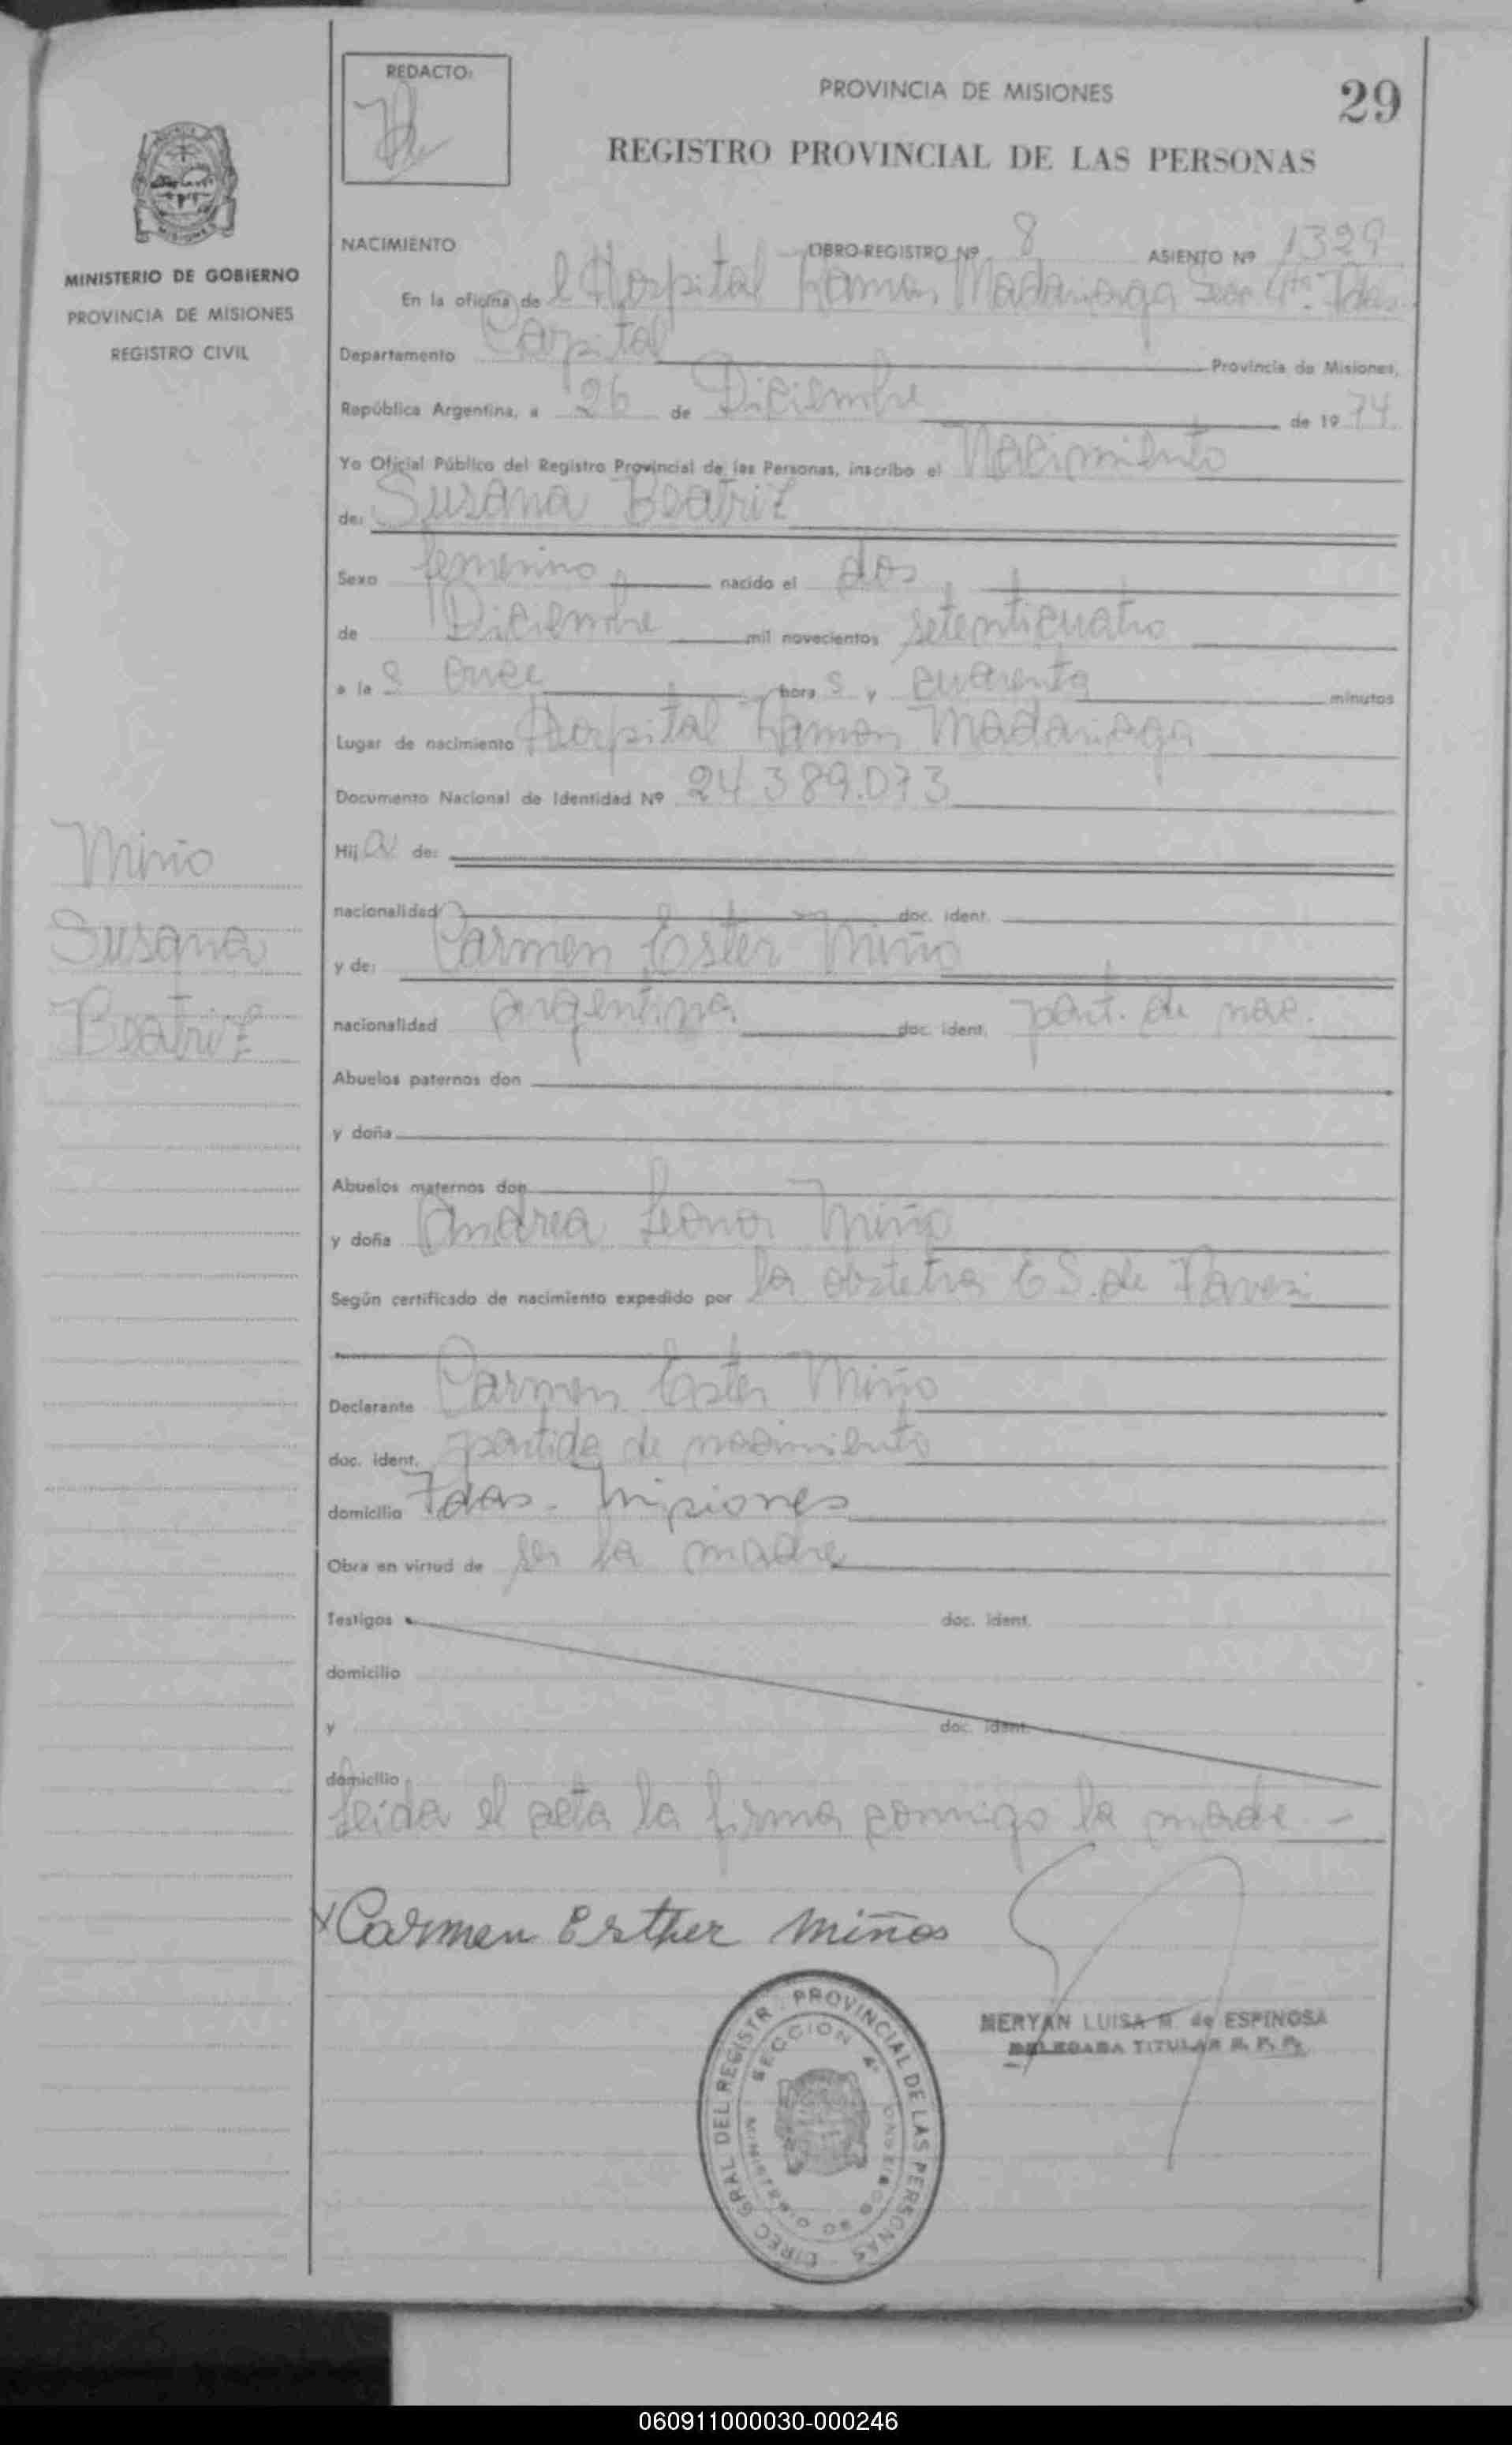 REDACTO:
PROVINCIA DE MISIONES
29
REGISTRO PROVINCIAL DE LAS PERSONAS
MINISTERIO DE GOBIERNO
PROVINCIA DE MISIONES
REGISTRO CIVIL
NACIMIENTO LIBRO-REGISTRO Nº 8 ASIENTO Nº 1329
En la oficina de l Hospital Ramon Madariaga Secc 4ta. Pdas.
Departamento Capital Provincia de Misiones,
República Argentina, a 26 de Diciembre de 1974
Yo Oficial Público del Registro Provincial de las Personas, inscribo el Nacimiento
de: Susana Beatriz
Sexo femenino nacido el dos
de Diciembre mil novecientos setenticuatro
a las once horas y cuarenta minutos
Lugar de nacimiento Hospital Ramon Madariaga
Documento Nacional de Identidad Nº 24.389.073
Hija de:
nacionalidad doc. ident.
y de: Carmen Ester Miño
nacionalidad argentina doc. ident. part. de nac.
Abuelos paternos don
y doña
Abuelos maternos don
y doña Andrea Leonor Miño
Según certificado de nacimiento expedido por la obstetra E S. de
Declarante Carmen Ester Miño
doc. ident. partida de nacimiento
domicilio Pdas. Misiones
Obra en virtud de ser la madre
Testigos doc. ident.
domicilio
y doc. ident.
domicilio
leida el acta la firma conmigo la madre -
Miño
Susana
Beatriz
x Carmen Esther Miños
MERYAN LUISA M. de ESPINOSA
DELEGADA TITULAR R. P. P.
DIREC GRAL DEL REGISTR. PROVINCIAL DE LAS PERSONAS
SECCION 4ª
MINISTERIO DE GOBIERNO
060911000030-000246